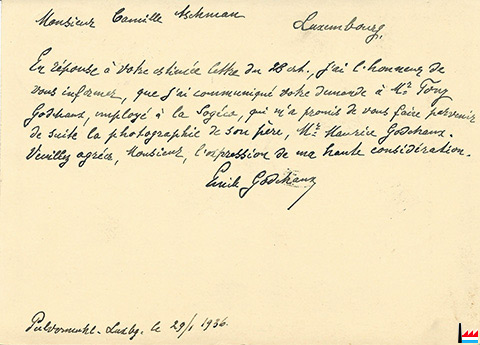 Monsieur Camille Aschman
Luxembourg.
En réponse à votre estimée lettre du 28 ct., j'ai l'honneur de
vous informer, que j'ai communiqué votre demande à Mr. Tony
Godchaux, employé à la Sogéco, qui m'a promis de vous faire parvenir
de suite la photographie de son père, Mr. Maurice Godchaux.
Veuillez agréer, Monsieur, l'expression de ma haute considération.
Emile Godchaux
Pulvermuhl-Luxbg. le 29/1 1936.